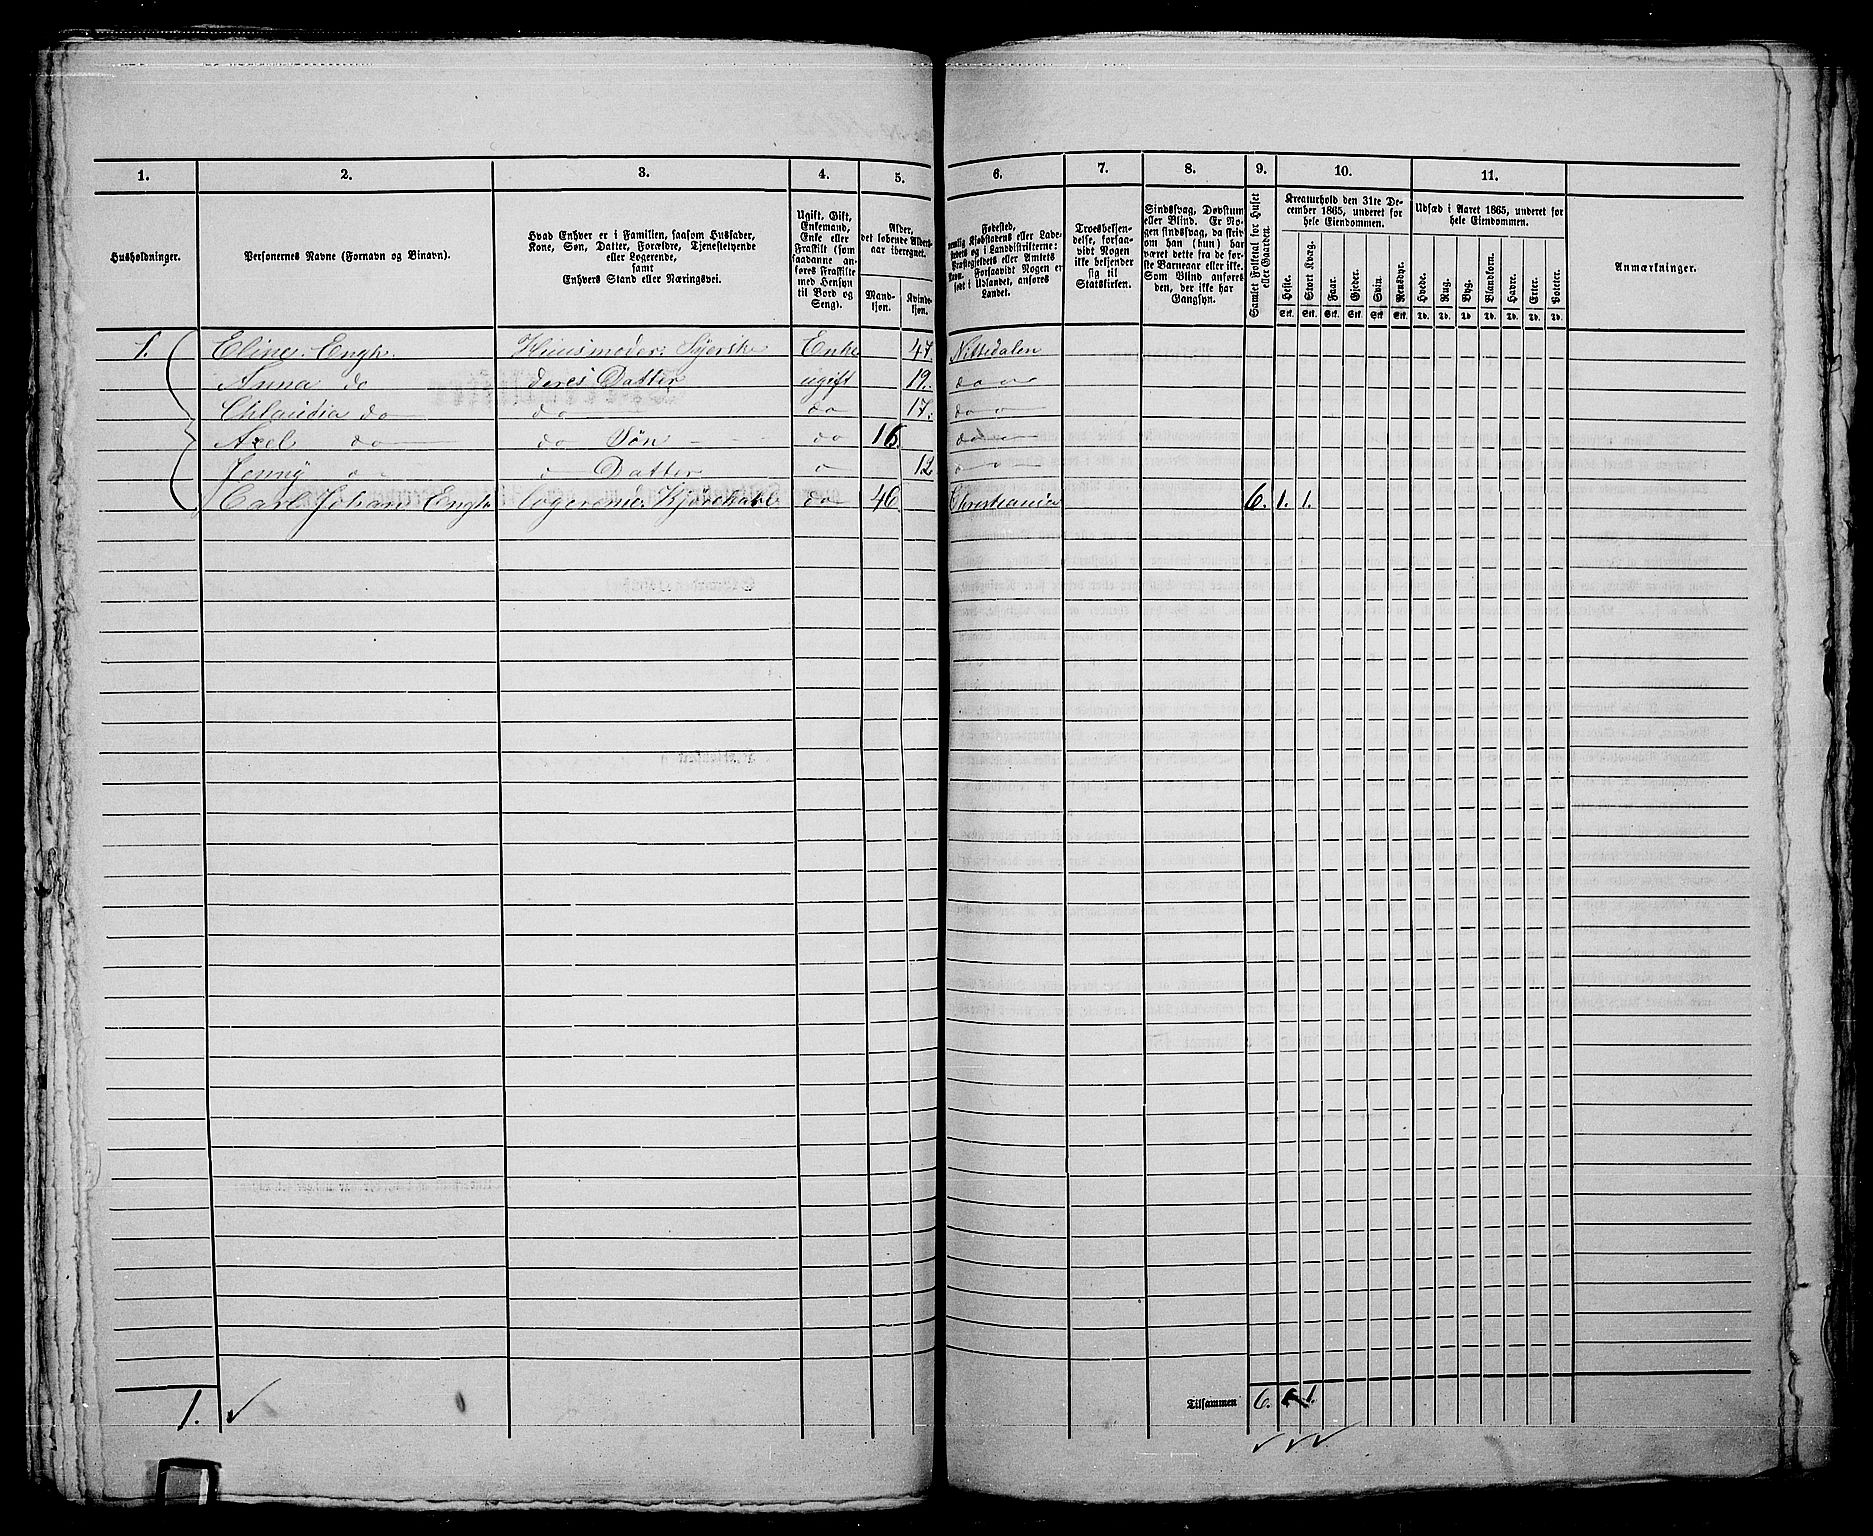 1. 2. 3. 4. 5. 6. 7. 8. 9. 10. 11.
Husholdninger.
Personernes Navne (Fornavn og Binavn).
Hvad Enhver er i Familien, saasom Husfader,
Kone, Søn, Datter, Forældre, Tjenestetyende
eller Logerende,
samt
Enhvers Stand eller Næringsvei.
Ugift, Gift,
Enkemand,
Enke eller
Fraskilt (som
saadanne an-
føres Fraskilte
med Hensyn
til Bord og
Seng).
Alder,
det løbende Alders-
aar iberegnet.
Mand-
kjøn.
Kvinde-
kjøn.
Fødested,
nemlig Kjøbstadens eller Lade-
stedets og i Landdistrikterne:
Præstegjeldets eller Amtets
Navn. Forsaavidt Nogen er
født i Udlandet, anføres
Landet.
Troesbekjen-
delse, forsaa-
vidt Nogen
ikke bekjender
sig til
Statskirken.
Sindssvag, Døvstum
eller Blind. Er No-
gen sindssvag, da skriv
om han (hun) har
været dette fra de før-
ste Barneaar eller ikke.
Som Blind anføres
den, der ikke har
Gangsyn.
Samlet Folketal for Huset
eller Gaarden.
Kreaturhold den 31te De-
cember 1865, underet for
hele Eiendommen.
Heste. Stort Kvæg. Faar. Gjeder. Svin. Rensdyr.
Stk. Stk. Stk. Stk. Stk. Stk.
Udsæd i Aaret 1865, underet for
hele Eiendommen.
Hvede. Rug. Byg. Blandkorn. Havre. Erter. Poteter.
Td. Td. Td. Td. Td. Td. Td.
Anmærkninger.
1. Eline Engh. Huusmoder: Syerske Enke 47. Nittedalen
Anna do deres Datter ugift 19. do
Chlaudia do do do 17. do
Axel do do Søn do 16. do
Jenny Datter 12.
Carl Johan Engh logerende do 46 Christiania 6. 1. 1.
1. Tilsammen 6. 1 1.